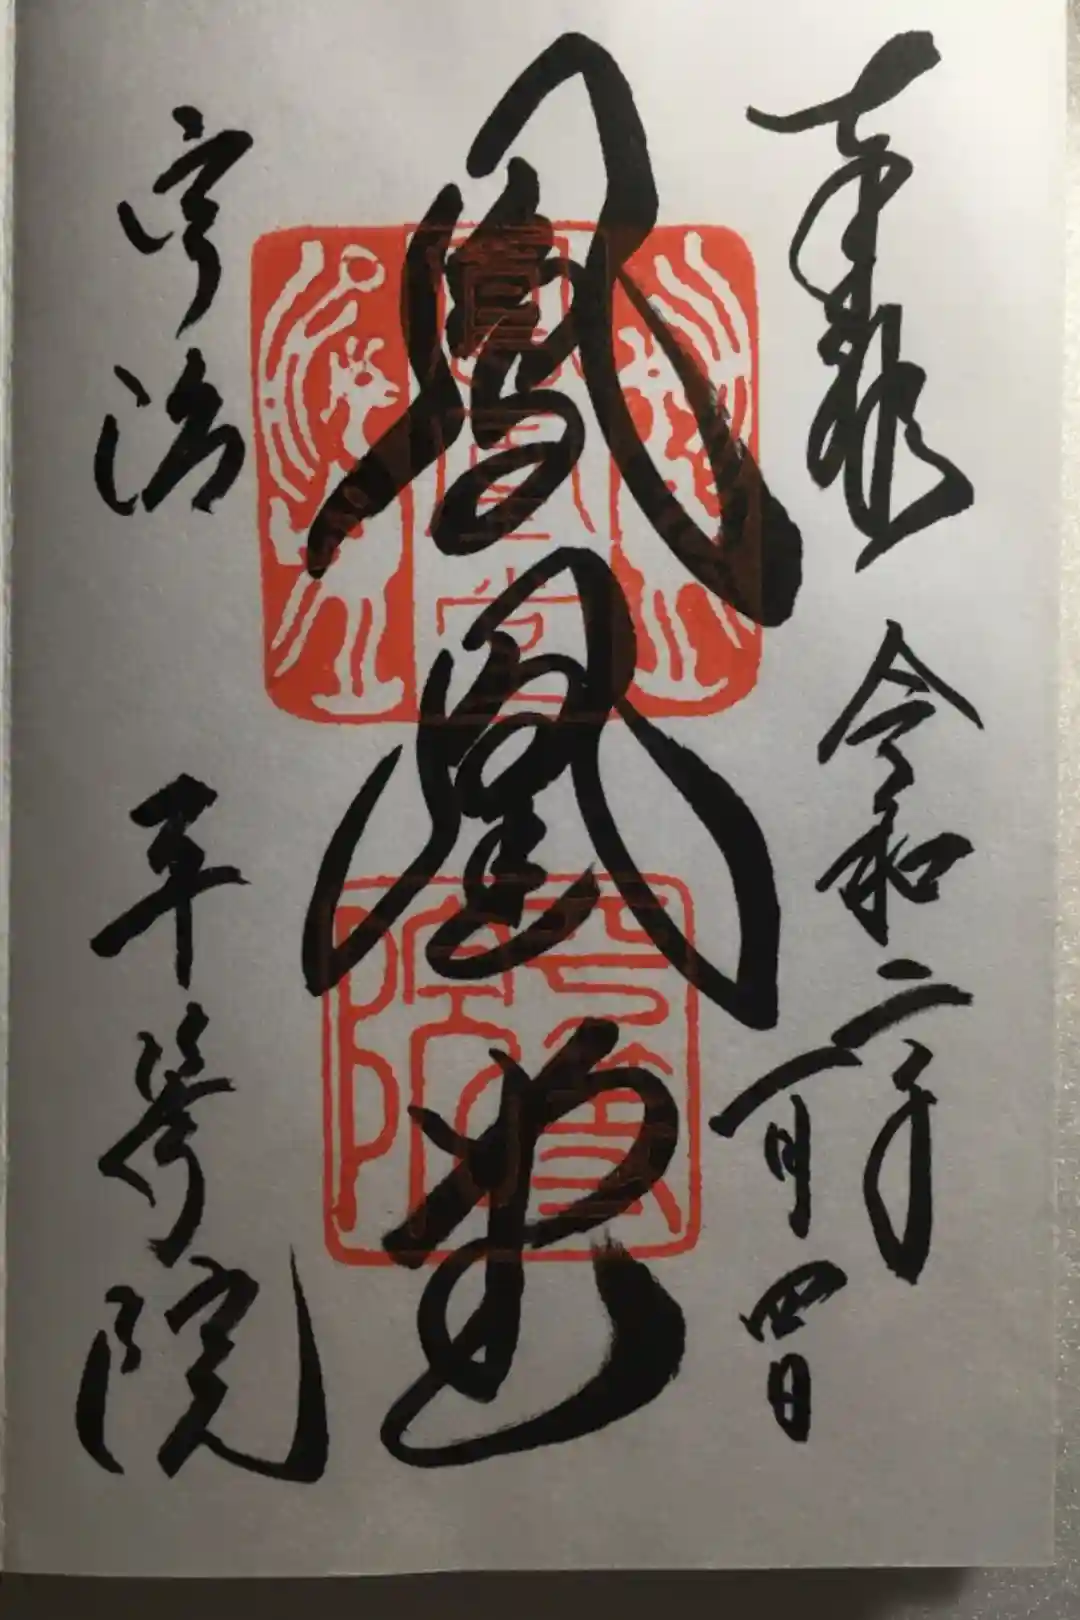 奉拝 令和二年
一月四日
鳳凰堂
宇治 平等院
鳳凰堂
平等院